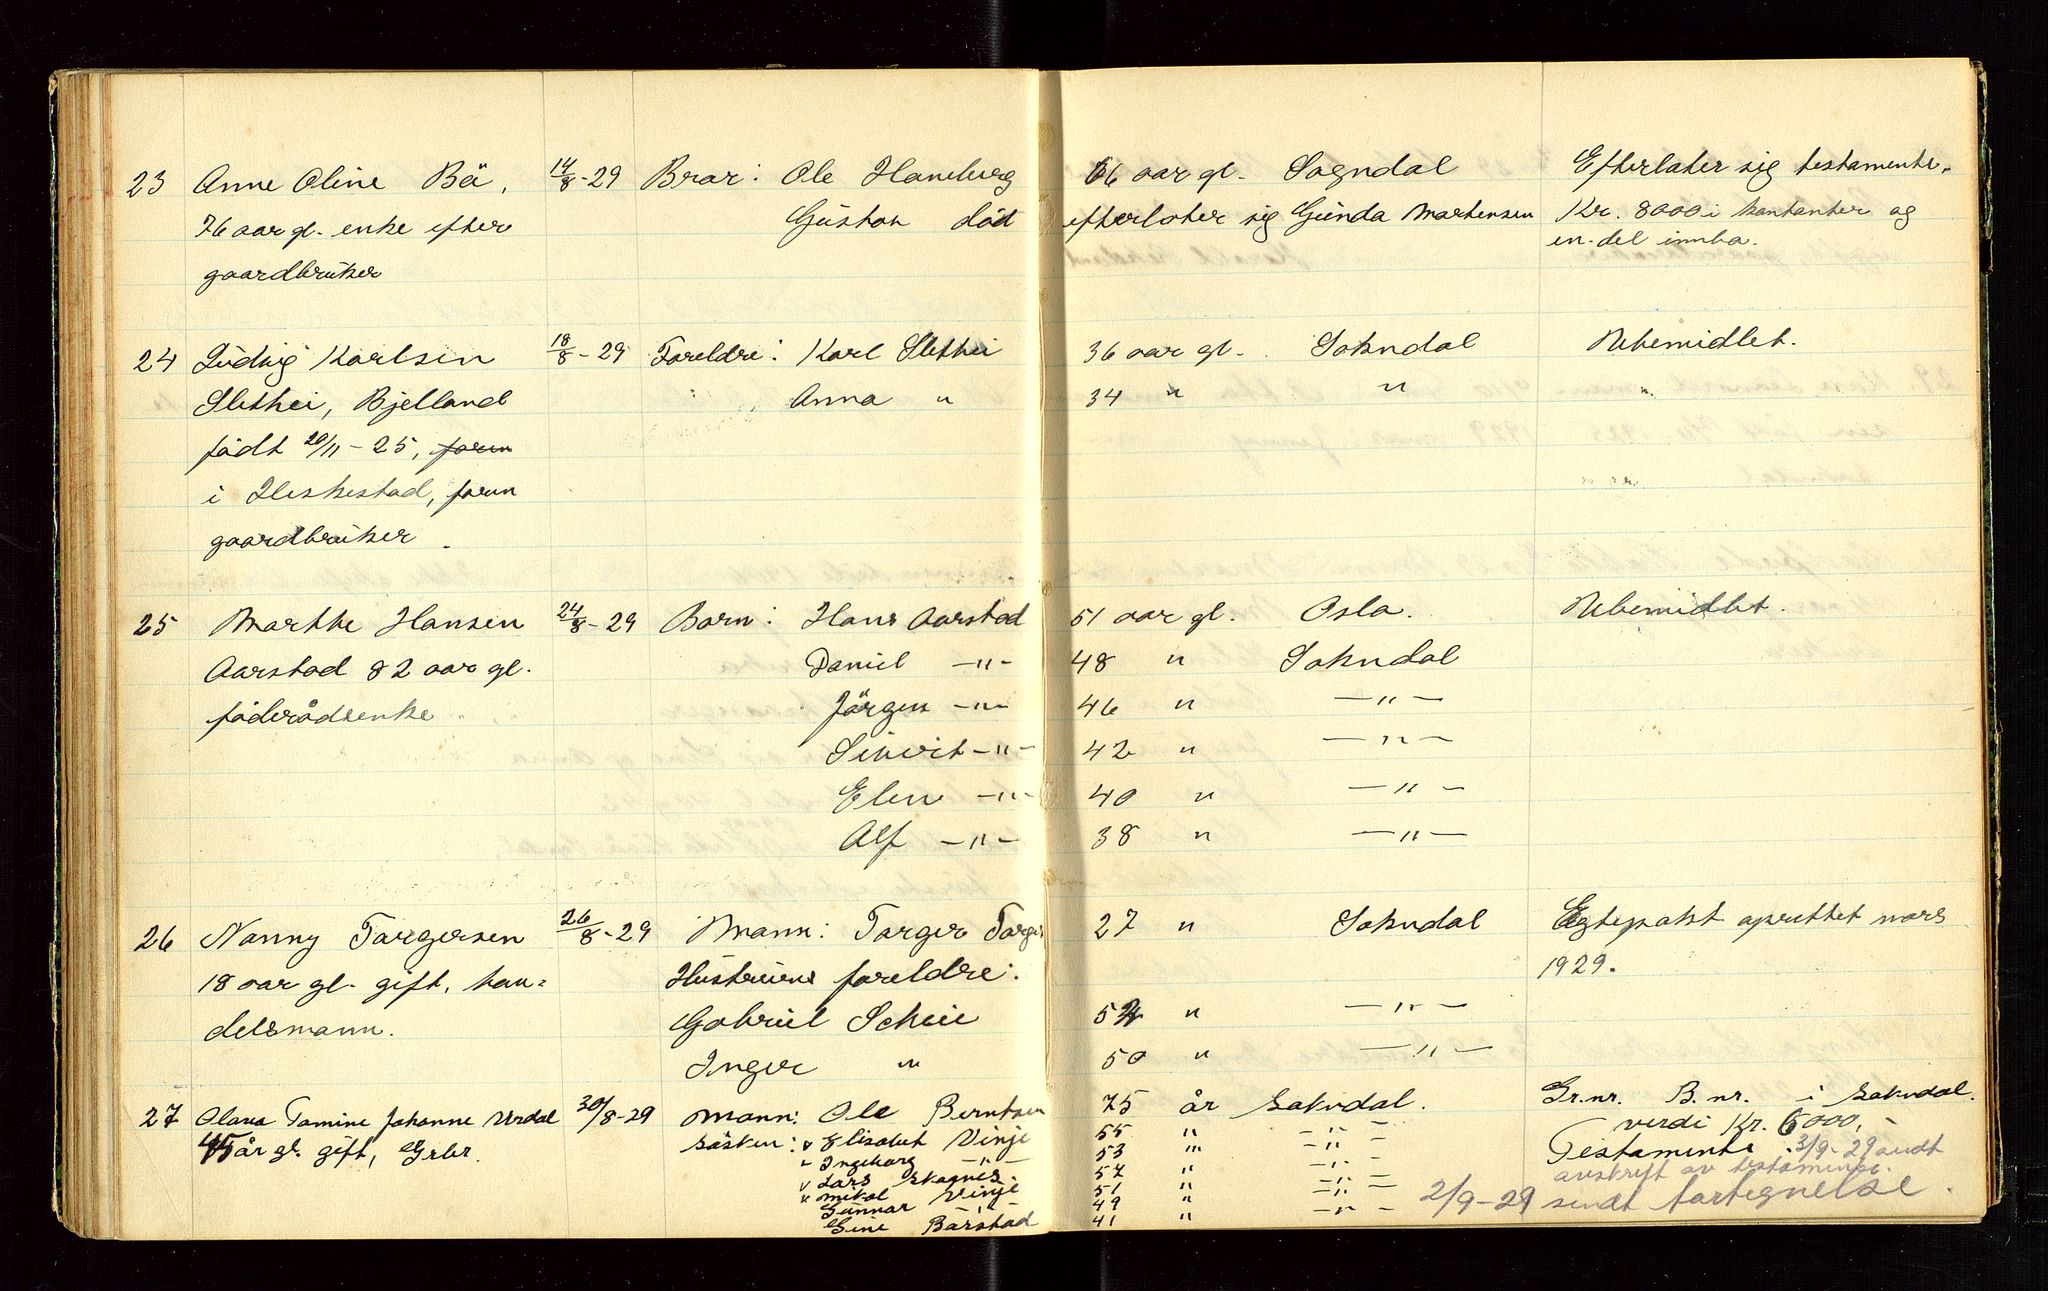 23 Anne Oline Bö, 14/8-29 Bror: Ole Haneberg 66 aar gl. Sogndal Efterlater sig testamente.
76 aar gl. enke efter Gustav död efterlater sig Gunda Martensen Kr. 8000 i kontanter og
en del innbo.
gaardbruker
24 Ludvig Karlsen 18/8-29 Foreldre: Karl Slethei 36 aar gl. Sokndal Ubemidlet.
Slethei, Bjelland Anna " 34 " " "
född 20/11-25, forun
i Heskestad, forun
gaardbruker.
25 Marthe Hansen 24/8-29 Barn: Hans Aarstad 51 aar gl. Oslo. Ubemidlet.
Aarstad 82 aar gl. Daniel -"- 48 " Sokndal
föderådsenke Jörgen -"- 46 " -"-
Sikvit -"- 42 " -"-
Elen -"- 40 " -"-
Alf -"- 38 " -"-
26 Nanny Torgersen 26/8-29 Mann: Torger Torger 27 " Sokndal Egtepakt oprettet mars
18 aar gl. gift, han= Hustruens foreldre: 1929.
delsmann. Gabriel Scheie 52 " -"-
Inger " 50 " -"-
27 Olava Tomine Johanne Urdal 30/8-29 Mann: Ole Berntsen 75 år Sokndal. Gr.nr. B.nr. i Sokndal.
45 år gl. gift, Grbr. Söskin: v Elisabet Vinje 55 " -"- verdi Kr. 6000,-
Ingeborg -"- 53 " -"- Testamente. 3/9-29 sendt
v Lars Skagnes 52 " -"- avskrift av testamente.
v Mikal Vinje 51 " -"- 2/9-29 sendt fortegnelse.
Gunnar -"- 49 " -"-
Gine Barstad 41 "